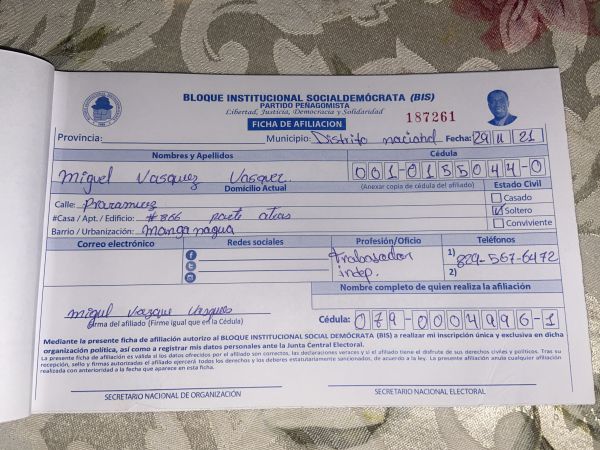 BLOQUE INSTITUCIONAL SOCIALDEMÓCRATA (BIS)
PARTIDO PEÑAGOMISTA
Libertad, Justicia, Democracia y Solidaridad
FICHA DE AFILIACIÓN 187261
Provincia: Municipio: Distrito nacional Fecha: 29 11 21
Nombres y Apellidos Cédula
Miguel Vasquez Vasquez 001-0155044-0
Domicilio Actual (Anexar copia de cédula del afiliado) Estado Civil
Calle: Casado
#Casa / Apt. / Edificio: #866 parte atras Soltero
Barrio / Urbanización: Manganagua Conviviente
Correo electrónico Redes sociales Profesión/Oficio Teléfonos
trabasador 1) 829-567-6472
indep. 2)
Nombre completo de quien realiza la afiliación
miguel Vazque Vasques
Firma del afiliado (Firme igual que en la Cédula) Cédula: 079-0004996-1
Mediante la presente ficha de afiliación autorizo al BLOQUE INSTITUCIONAL SOCIAL DEMÓCRATA (BIS) a realizar mi inscripción única y exclusiva en dicha
organización política, así como a registrar mis datos personales ante la Junta Central Electoral.
La presente ficha de afiliación es válida si los datos ofrecidos por el afiliado son correctos, las declaraciones veraces y si el afiliado tiene el disfrute de sus derechos civiles y políticos. Tras su
recepción, sello y firmas autorizadas el afiliado ejercerá todos los derechos y los deberes estatutariamente sancionados, de acuerdo a la ley. La presente afiliación anula cualquier afiliación
realizada con anterioridad a la fecha que aparece en esta ficha.
SECRETARIO NACIONAL DE ORGANIZACIÓN SECRETARIO NACIONAL ELECTORAL